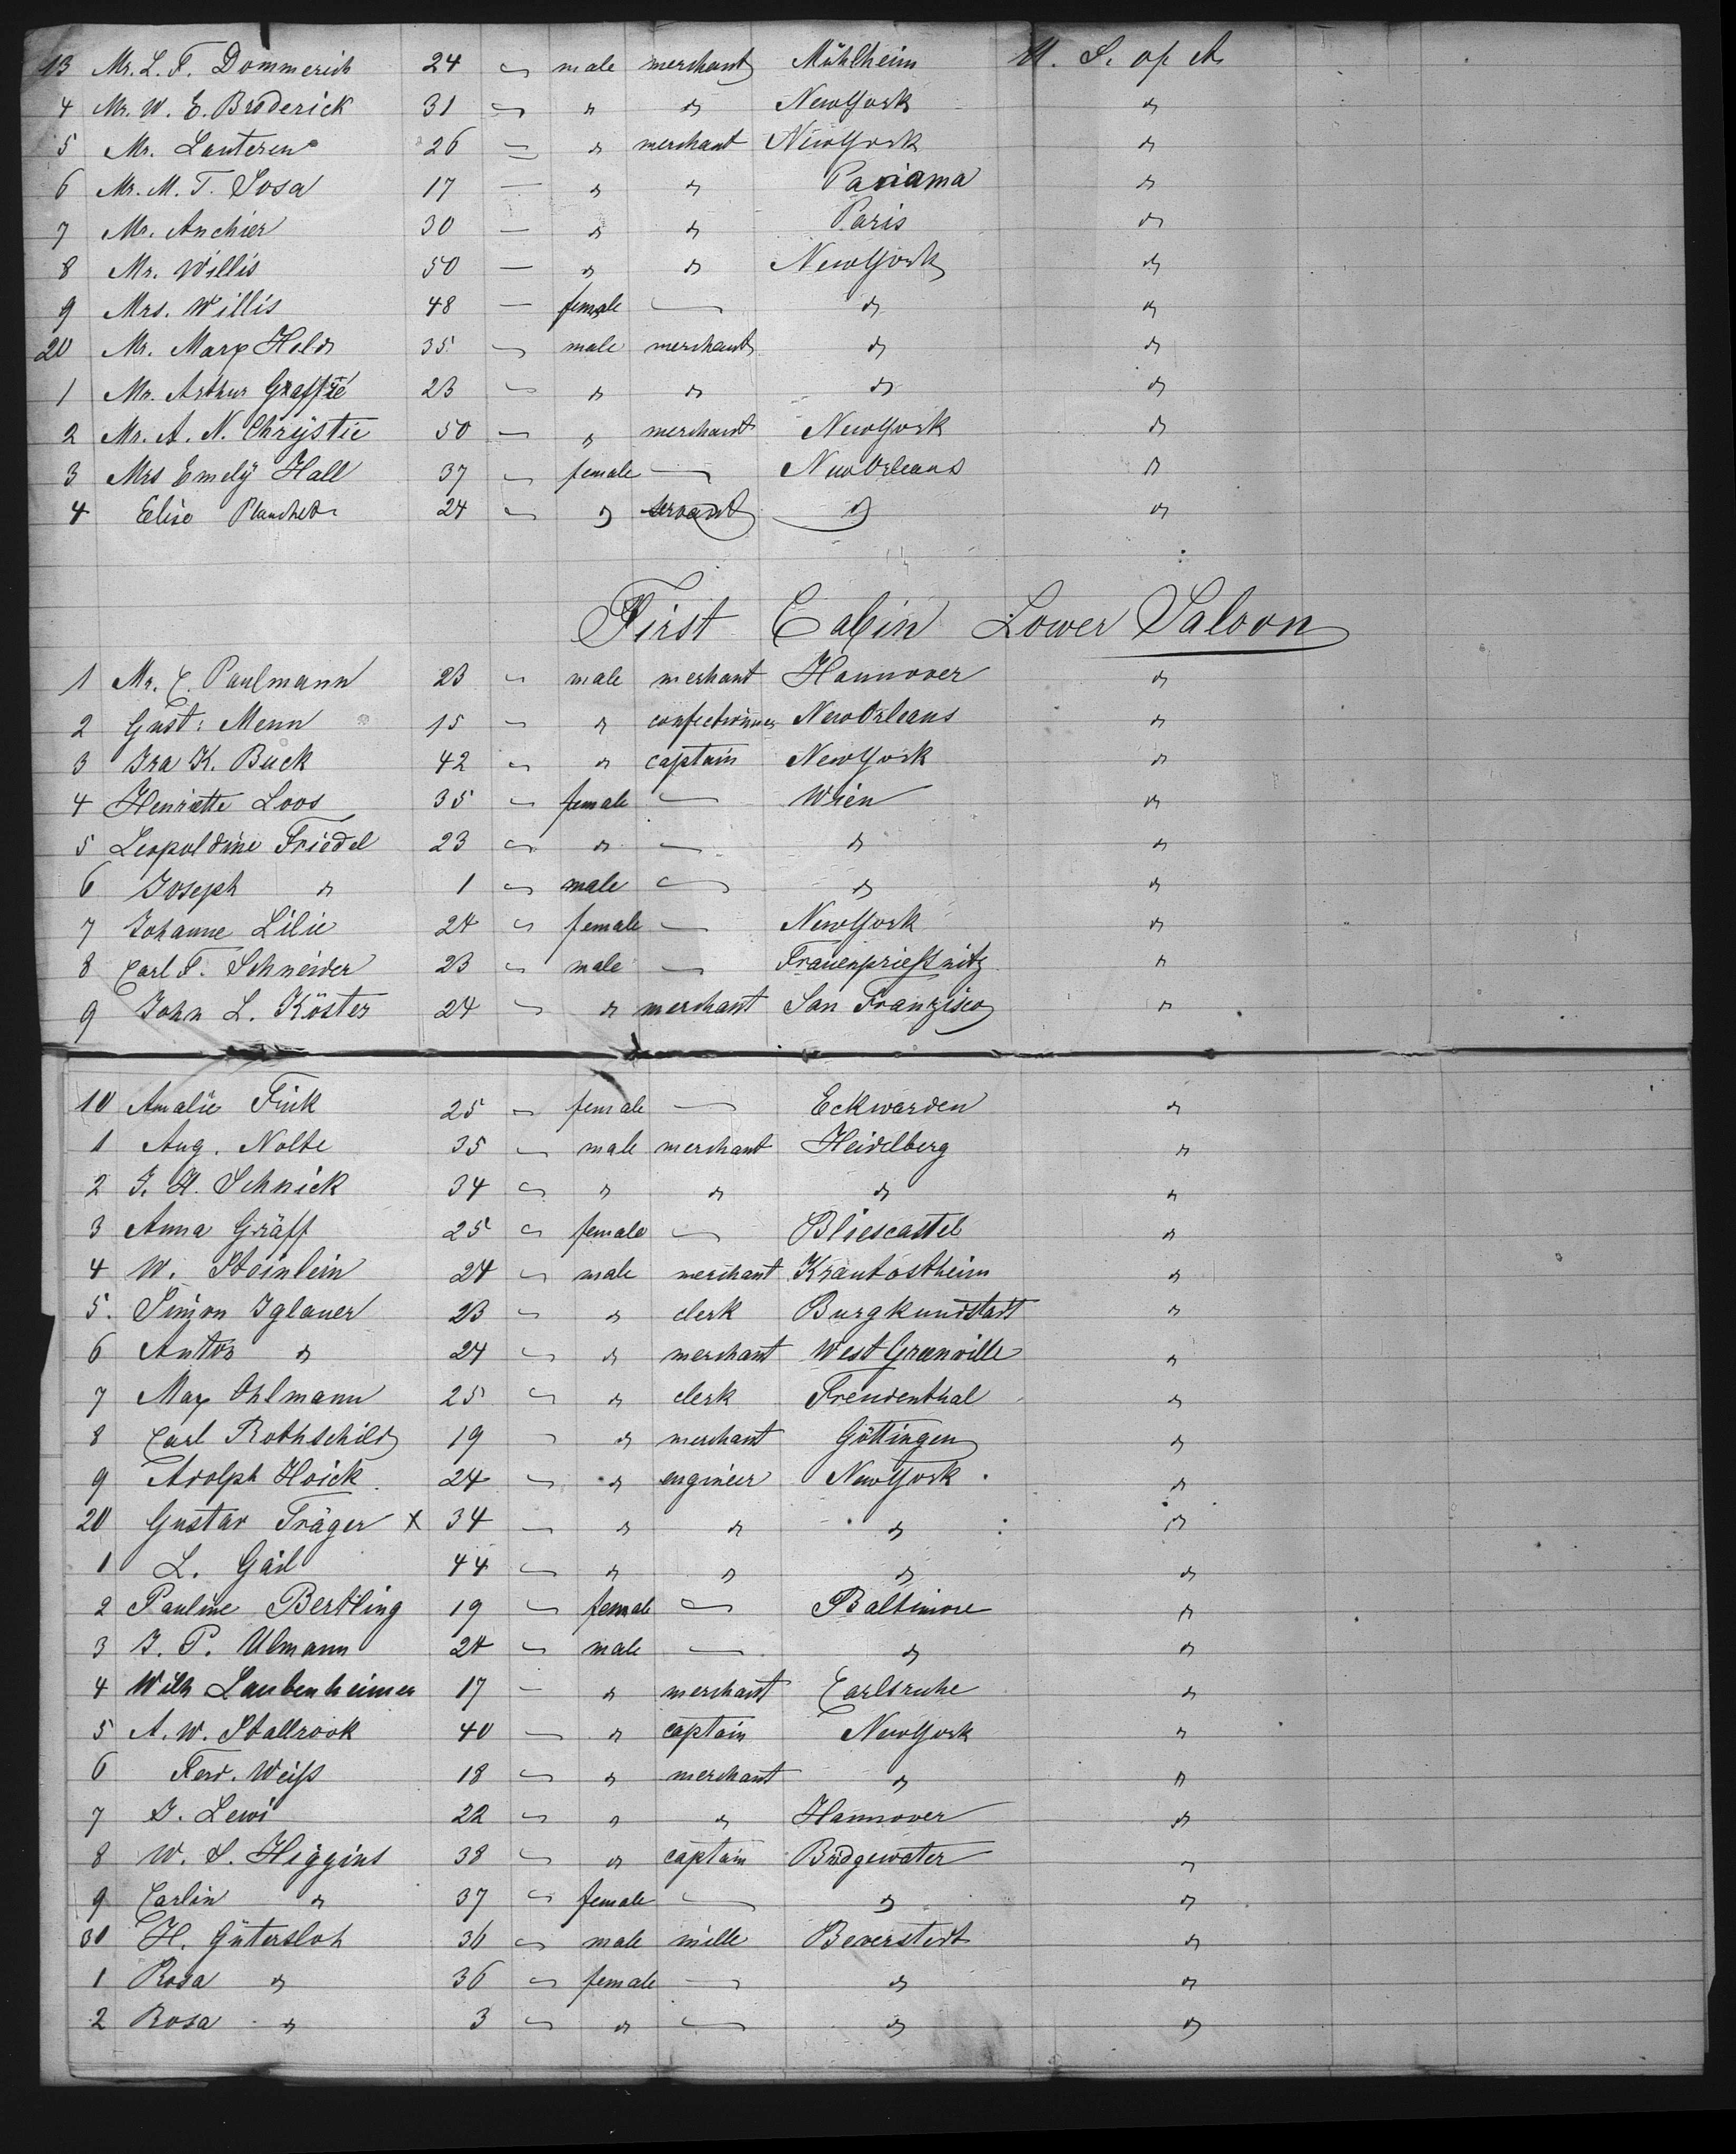 13 Mr. L. F. Dommerich 24 — male merchant Mühlheim U. S. of A.
4 Mr. W. E. Broderick 31 — " " NewYork "
5 Mr. Lauteren 26 — " merchant NewYork "
6 Mr. M. T. Sosa 17 — " " Panama "
7 Mr. Anchier 30 — " " Paris "
8 Mr. Willis 50 — " " NewYork "
9 Mrs. Willis 48 — female — " "
20 Mr. Marx Held 35 — male merchant " "
1 Mr. Arthur 23 — " " " "
2 Mr. A. N. Chrÿstie 50 — " merchant NewYork "
3 Mrs Emelÿ Hall 37 — female — NewOrleans "
4 Elise Planchet 24 — " servant " "
First Cabin Lower Saloon
1 Mr. C. Paulmann 23 — male merhant Hannover "
2 Gust: Menn 15 — " confectionner NewOrleans "
3 Ira K. Buck 42 — " captain NewYork "
4 Henriette Loos 35 — female — Wien "
5 Leopoldine Friedel 23 — " — " "
6 Joseph " 1 — male — " "
7 Johanne Lilie 24 — female — NewYork "
8 Carl F. Schneider 23 — male — Frauenprießnitz "
9 John L. Köster 24 — " merchant San Franzisco "
10 Amalie Fink 25 — female — Eckwarden "
1 Aug. Nolte 35 — male merchant Heidelberg "
2 J. H. Schnick 34 — " " " "
3 Anna Gräff 25 — female — Bliescastel "
4 W. Steinlein 24 — male merchant Krautostheim "
5. Simon Iglauer 23 — " clerk Burgkundstadt "
6 Anton " 24 — " merchant West Greenville "
7 Max Ohlmann 25 — " clerk Freudenthal "
8 Carl Rothschild 19 — " merchant Göttingen "
9 Adolph Hoick 24 — " engineer NewYork "
20 Gustav Träger x 34 — " " " "
1 L. Gail 44 — " " " "
2 Pauline Bertling 19 — female — Baltimore "
3 J. P. Ulmann 24 — male — " "
4 Wilh Laubenheimer 17 — " merchant Carlsruhe "
5 A. W. Stallrook 40 — " captain NewYork "
6 Ferd. Weiß 18 — " merchant " "
7 J. Lewi 22 — " " Hannover "
8 W. S. Higgins 38 — " captain Bridgewater "
9 Carlin " 37 — female — " "
30 H. Gütersloh 36 — male mille Beverstedt "
1 Rosa " 36 — female — " "
2 Rosa " 3 — " — " "